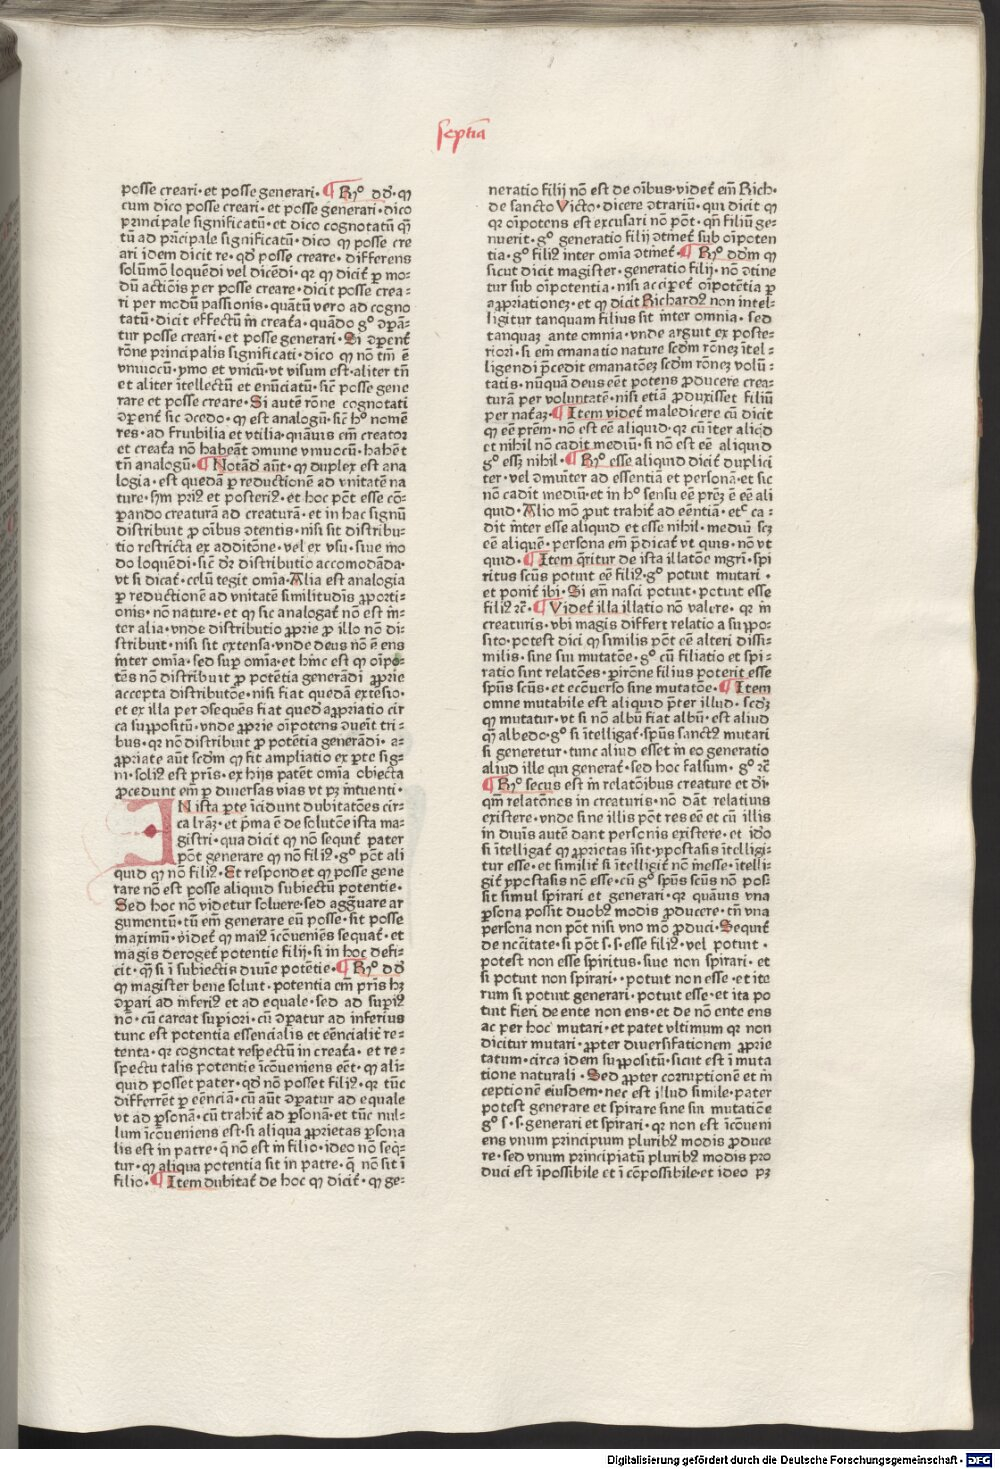 septia
posse creari·et posse generari·¶ R̃º dd̃·qꝫ
cum dico posse creari·et posse generari·dico
principale significatū·et dico cognotatū qm̄
tū ad prīcipale significatū·dico qꝫ posse cre
ari idem dicit re·qd̃ posse creare·differens
solūmō loquēdi vel dicēdi·qꝛ qꝫ dicit̃ ꝑ mo-
dū actiōis per posse creare·dicit posse crea-
ri per modū passionis·quātū vero ad cogno
tatū·dicit effectū in creat̃a·quādo gº ꝯpā-
tur posse creari·et posse generari·Si ꝯpent̃
rōne principalis significati·dico qꝫ nō tm̄ ē
vniuocū·pmo et vnicū·vt visum est·aliter tn̄
et aliter ītellectū et enūciatū·sic̄ posse gene
rare et posse creare·Si autē rōne cognotati
ꝯpent̃ sic ꝯcedo·qꝫ est analogū·sic̄ hº nomē
res·ad fruibilia et vtilia·quāuis em̄ creator
et creat̃a nō habeāt ꝯmune vniuocū·habēt
tn̄ analogū·¶ Notād̃ aūt·qꝫ duplex est ana
logia·est quedā ꝑ reductionē ad vnitatē na
ture·sꝫm priꝰ et posteriꝰ·et hoc pōt esse cō-
pando creaturā ad creaturā·et in hac signū
distribuit ꝓ oībus ꝯtentis·nisi sit distribu-
tio restricta ex additōne·vel ex vsu·siue mō
do loquēdi·sic̄ dꝛ̃ distributio accomodāda·
vt si dicat̃·celū tegit omīa·Alia est analogia
ꝑ reductionē ad vnitatē similitudīs ꝓporti-
onis·nō nature·et qꝫ sic analogat̃ nō est in-
ter alia·vnde distributio ꝓprie ꝓ illo nō di-
stribuit·nisi sit extensa·vnde deus nō ē ens
inter omīa·sed suꝑ omīa·et hinc est qꝫ oīpo-
tēs nō distribuit ꝓ potētia generādi ꝓprie
accepta distributōe·nisi fiat quedā extēsio·
et ex illa per ꝯsequēs fiat qued̃ aꝓpriatio cir
ca suppositū·vnde ꝓprie oīpotens ꝯuenit tri-
bus·qꝛ nō distribuit ꝓ potētia generādi·a-
ꝓpriate aūt scd̄m qꝫ fit ampliatio ex ꝑte sig-
ni·soliꝰ est pr̄is·ex hijs patēt omīa obiecta
ꝓcedunt em̄ ꝑ diuersas vias vt pꝫ intuenti·
IN ista ꝑte īcidunt dubitatōes cir-
ca lr̄aꝫ·et pma ē de solutōe ista ma-
gistri·qua dicit qꝫ nō sequit̃ pater
pōt generare qꝫ nō filiꝰ·gº pōt ali
quid qꝫ nō filiꝰ·Et respondet qꝫ posse gene
rare nō est posse aliquid subiectū potentie·
Sed hoc nō videtur soluere·sed aggūare ar
gumentū·tū em̄ generare eū posse·sit posse
maximū·videt̃ qꝫ maiꝰ īcōueniēs sequat̃·et
magis deroget̃ potentie filij·si in hoc defi-
cit·qm̄ si ī subiectis diuine potētie·¶ R̃º dd̃
qꝫ magister bene soluit·potentia em̄ pr̄is hꝫ
ꝯpari ad inferiꝰ et ad equale·sed ad supiꝰ
nō·cū careat supiori·cū ꝯpatur ad inferius
tunc est potentia essencialis et eēncialit̃ re-
tenta·qꝛ cognotat respectū in creat̃a·et re-
spectu talis potentie īcōueniens eēt·qꝫ ali-
quid posset pater·qd̃ nō posset filiꝰ·qꝛ tūc
differrēt ꝑ eēnciā·cū aūt ꝯpatur ad equale
vt ad ꝑsonā·cū trahit̃ ad ꝑsonā·et tūc nul-
lum īcōueniens est·si aliqua ꝓprietas ꝑsona
lis est in patre·q̄ nō est in filio·ideo nō seq̄-
tur·qꝫ aliqua potentia sit in patre·q̄ nō sit ī
filio·¶ Item dubitat̃ de hoc qꝫ dicit̃·qꝫ ge-
neratio filij nō est de oībus·videt̃ em̄ Rich·
de sancto Victo·dicere ꝯtrariū·qui dicit qꝫ
qꝛ oīpotens est excusari nō pōt·qn̄ filiū ge-
nuerit·gº generatio filij ꝯtinet̃ sub oīpoten
tia·gº filiꝰ inter omīa ꝯtinet̃·¶ R̃º dd̄m qꝫ
sicut dicit magister·generatio filij·nō ꝯtine
tur sub oīpotentia·nisi accipet̃ oīpotētia ꝑ
aꝓpriationeꝫ·et qꝫ dicit Richardꝰ non intel-
ligitur tanquam filius sit inter omnia·sed
tanquaꝫ ante omnia·vnde arguit ex poste-
riori·si em̄ emanatio nature scd̄m rōneꝫ ītel-
ligendi p̄cedit emanatōeꝫ scd̄m rōneꝫ volū-
tatis·nūquā deus eēt potens ꝓducere crea-
turā per voluntatē·nisi etiā ꝓduxisset filiū
per nat̃aꝫ·¶ Item videt̃ maledicere cū dicit
qꝫ eē pr̄em·nō est eē aliquid·qꝛ cū īter aliqd̃
et nihil nō cadit mediū·si nō est eē aliquid
gº esꝫ nihil·¶ R̃º esse aliquid dicit̃ duplici
ter·vel ꝯmunit̃ ad essentiā et personā·et sic
nō cadit mediū·et in hº sensu eē pr̄eꝫ ē eē ali
quid·Alio mō ꝓut trahit̃ ad eēntiā·etc̃ ca-
dit inter esse aliquid et esse nihil·mediū scꝫ
eē aliquē·persona em̄ p̄dicat̃ vt quis·nō vt
quid·¶ Item q̄ritur de ista illatōe mgr̄i·spi
ritus scūs potuit eē filiꝰ·gº potuit mutari·
et ponit̃ ibi·Si em̄ nasci potuit·potuit esse
filiꝰ rc̄·¶ Videt̃ illa illatio nō valere·qꝛ in
creaturis·vbi magis differt relatio a suppo-
sito·potest dici qꝫ similis pōt eē alteri dissi-
milis·sine sui mutatōe·gº cū filiatio et spi-
ratio sint relatōes·ꝑirōne filius poterit esse
spūs scūs·et ecōuerso sine mutatōe·¶ Item
omne mutabile est aliquid p̄ter illud·scd̄ꝫ
qꝫ mutatur·vt si nō albū fiat albū·est aliud
qm̄ albedo·gº si ītelligat̃·spūs sanctꝰ mutari
si generetur·tunc aliud esset in eo generatio
aliud ille qui generat̃·sed hoc falsum·gº rc̄
¶ R̃º secus est in relatōibus creature et dī·
qm̄ relatōnes in creaturis·nō dāt relatiuis
existere·vnde sine illis pōt res eē et cū illis
in diuīs autē dant personis existere·et idō
si ītelligat̃ qꝫ ꝓprietas īsit·ypostasis ītelligi-
tur esse·et similit̃ si ītelligit̃ nō inesse·ītelli-
git̃ ypostasis nō esse·cū gº spūs scūs nō pos-
sit simul spirari et generari·qꝛ quāuis vna
ꝑsona possit duobꝰ modis ꝓducere·tn̄ vna
persona non pōt nisi vno mō ꝓduci·Sequit̃
de ncc̄itate·si pōt s·s·esse filiꝰ·vel potuit·
potest non esse spiritus·siue non spirari·et
si potuit non spirari··potuit non esse·et ite
rum si potuit generari·potuit esse·et ita po
tuit fieri de ente non ens·et de nō ente ens
ac per hoc mutari·et patet vltimum qꝛ non
dicitur mutari·ꝓpter diuersitationem ꝓprie
tatum·circa idem suppositū·sicut est ī muta
tione naturali·Sed ꝓpter corruptionē et in
ceptionē eiusdem·nec est illud simile·pater
potest generare et spirare sine sui mutatiōe
gº s·s·generari et spirari·qꝛ non est īcōueni
ens vnum principium pluribꝰ modis ꝓduce
re·sed vnum principiatū pluribꝰ modis pro
duci est īpossibile et ī cōpossibile·et ideo pꝫ
Digitalisierung gefördert durch die Deutsche Forschungsgemeinschaft - DFG